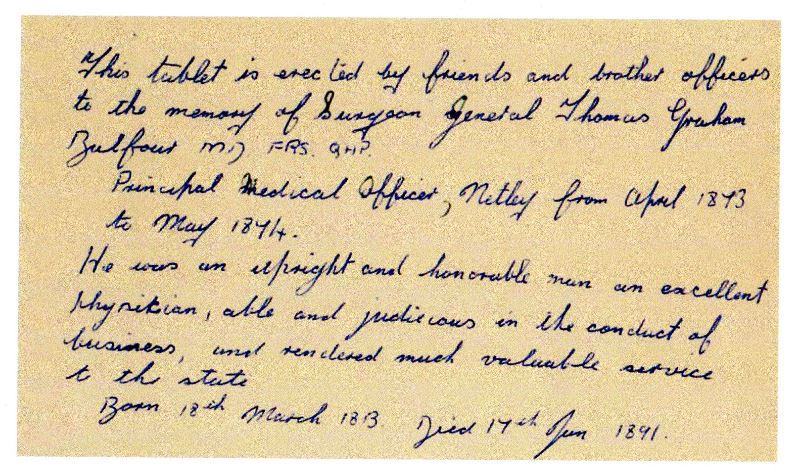 This tablet is erected by friends and brother officers
to the memory of Surgeon General Thomas Graham
Balfour MD FRS. QHP.
Principal Medical Officer, Netley from April 1873
to May 1874.
He was an upright and honorable man an excellent
physician, able and judicious in the conduct of
business, and rendered much valuable service
to the state
Born 18th March 1813. Died 17th Jan 1891.